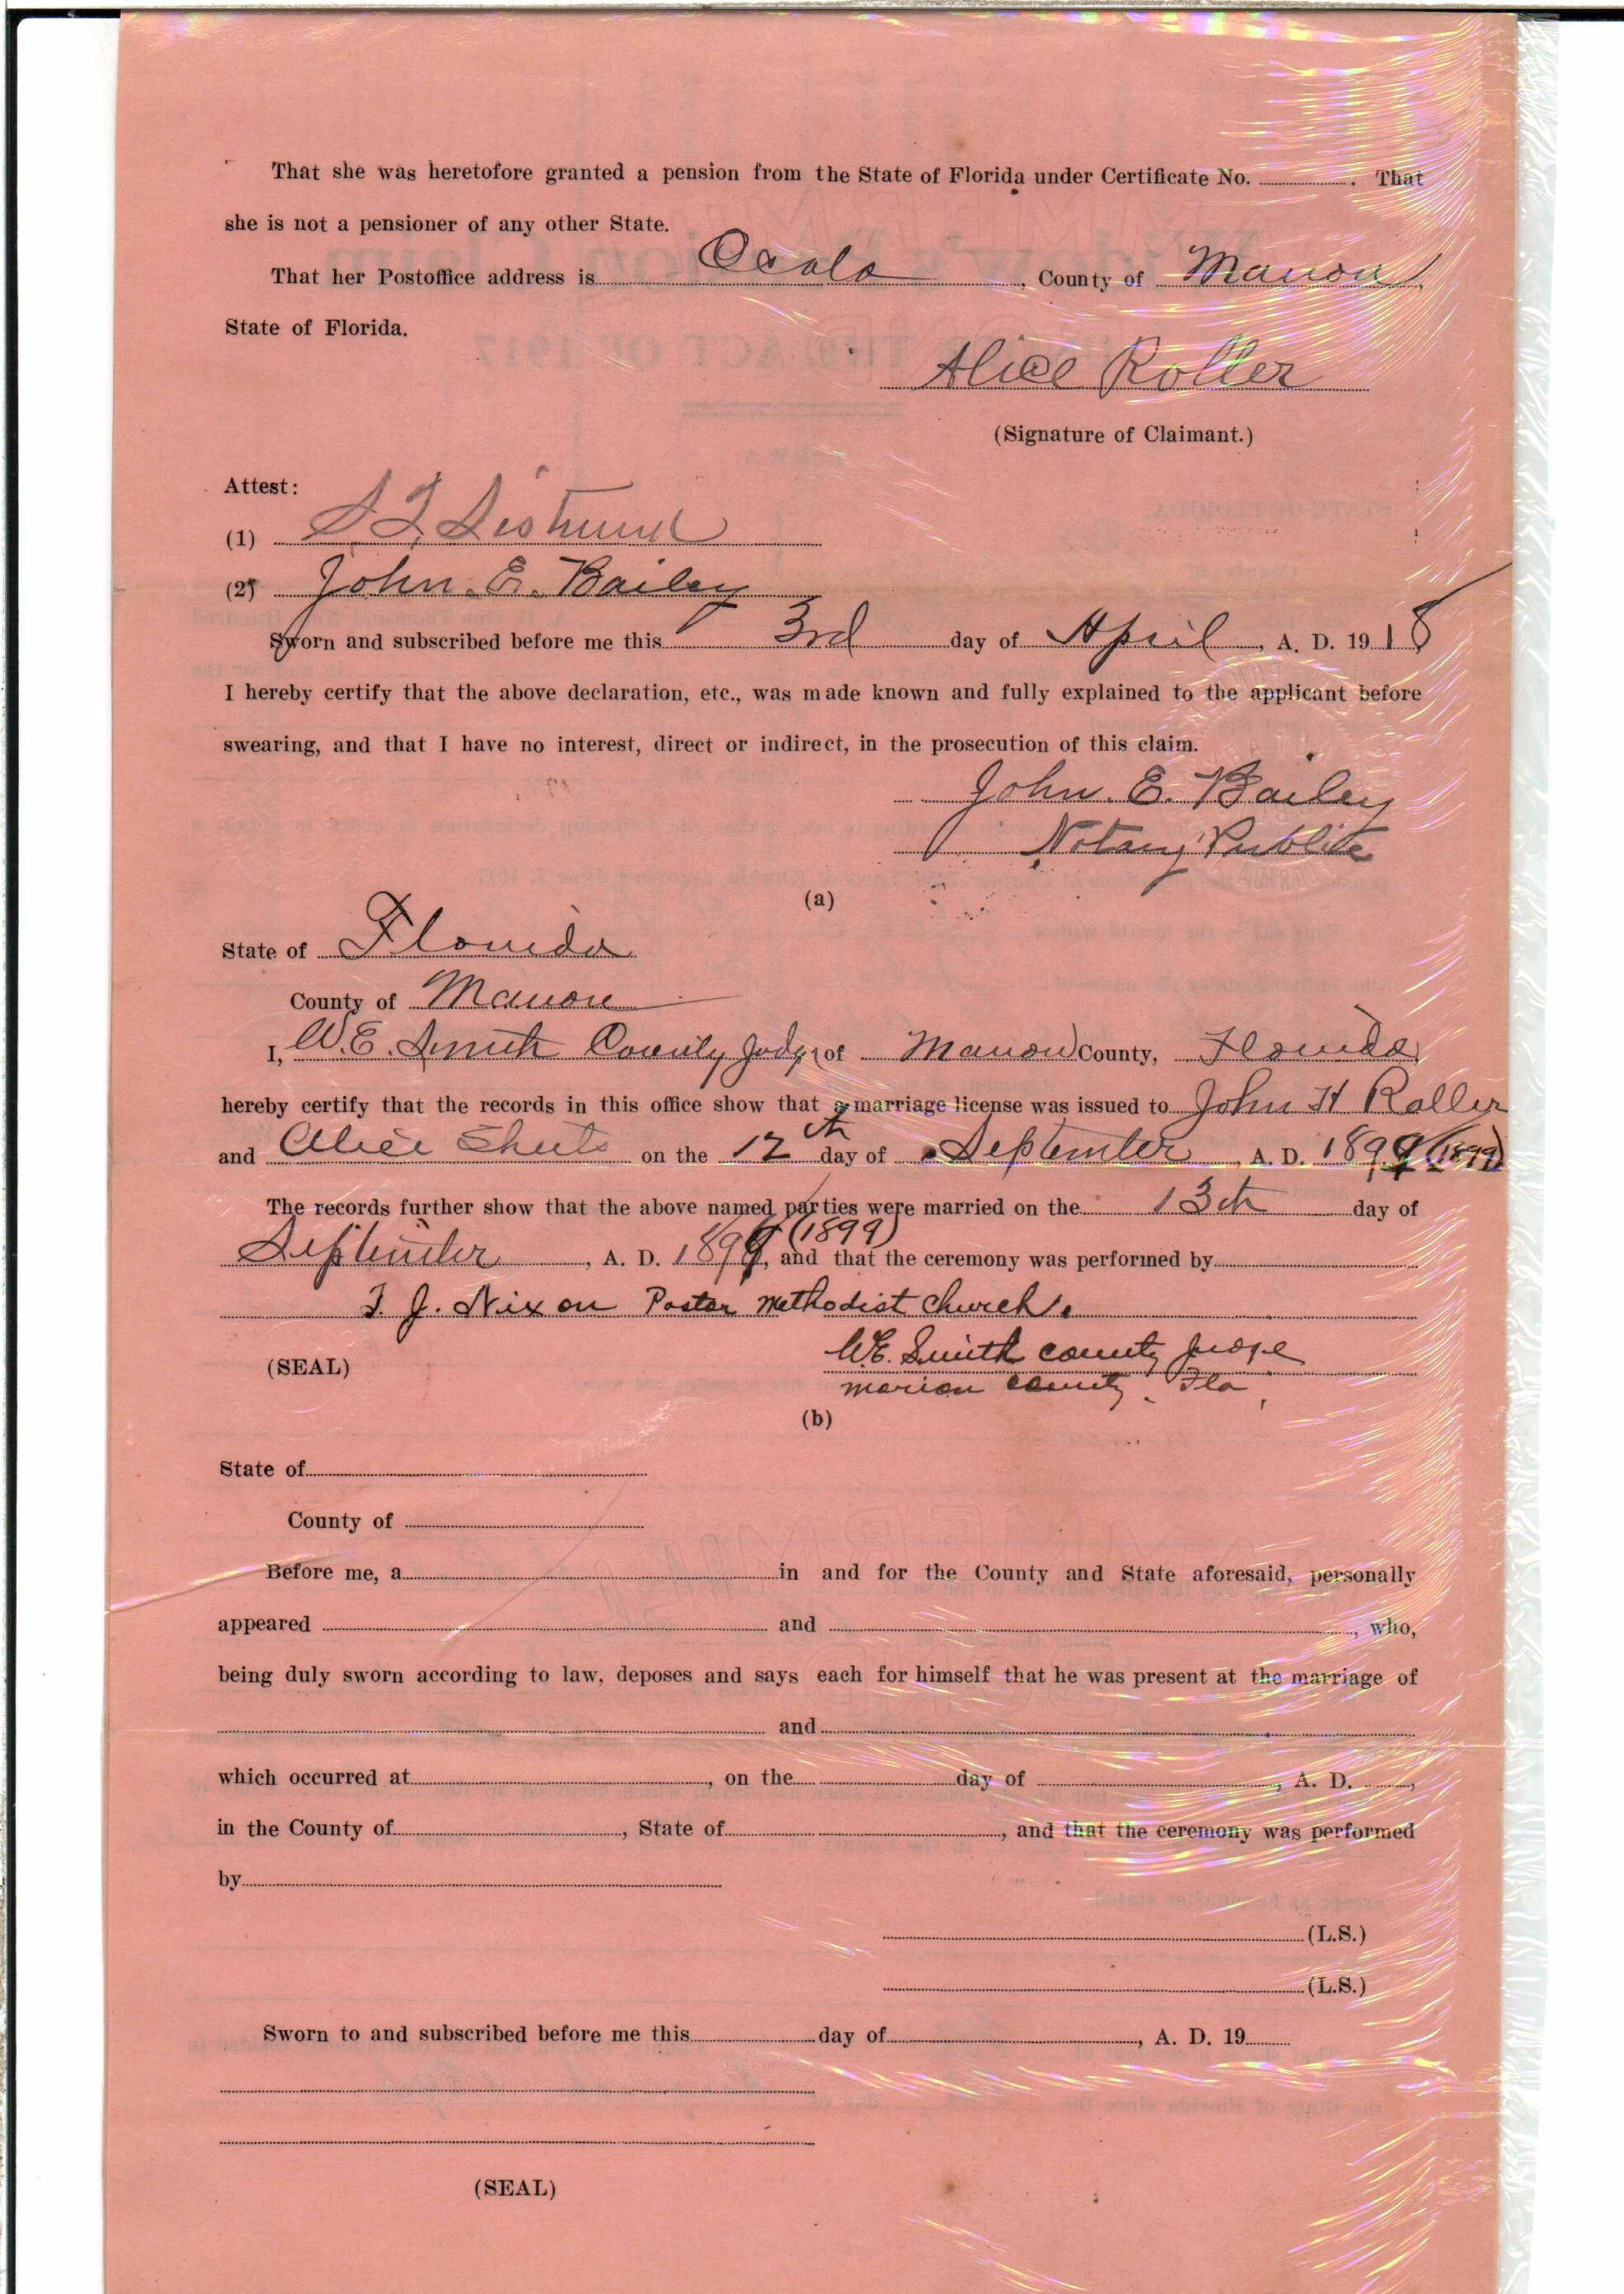 That she was heretofore granted a pension from the State of Florida under Certificate No. . That
she is not a pensioner of any other State.
That her Postoffice address is Ocala, County of Marion
State of Florida.
Alice Roller
(Signature of Claimant.)
Attest:
(1) S. T. Sistrunk
(2) John. E. Bailey
Sworn and subscribed before me this 3rd day of April, A. D. 1918
I hereby certify that the above declaration, etc., was made known and fully explained to the applicant before
swearing, and that I have no interest, direct or indirect, in the prosecution of this claim.
John. E. Bailey
Notary Public
(a)
State of Florida
County of Marion
I, W. E. Smith County Judge of Marion County, Florida,
hereby certify that the records in this office show that a marriage license was issued to John H Roller
and Alice on the 12th day of September, A. D. 1899 (1899)
The records further show that the above named parties were married on the 13th day of
September, A. D. 1899, (1899) and that the ceremony was performed by
T. J. Nixon Pastor Methodist Church.
(SEAL)
W. E. Smith County Judge
Marion County. Fla,
(b)
State of
County of
Before me, a in and for the County and State aforesaid, personally
appeared and , who,
being duly sworn according to law, deposes and says each for himself that he was present at the marriage of
and
which occurred at , on the day of , A. D. ,
in the County of , State of , and that the ceremony was performed
by
(L.S.)
(L.S.)
Sworn to and subscribed before me this day of , A. D. 19
(SEAL)